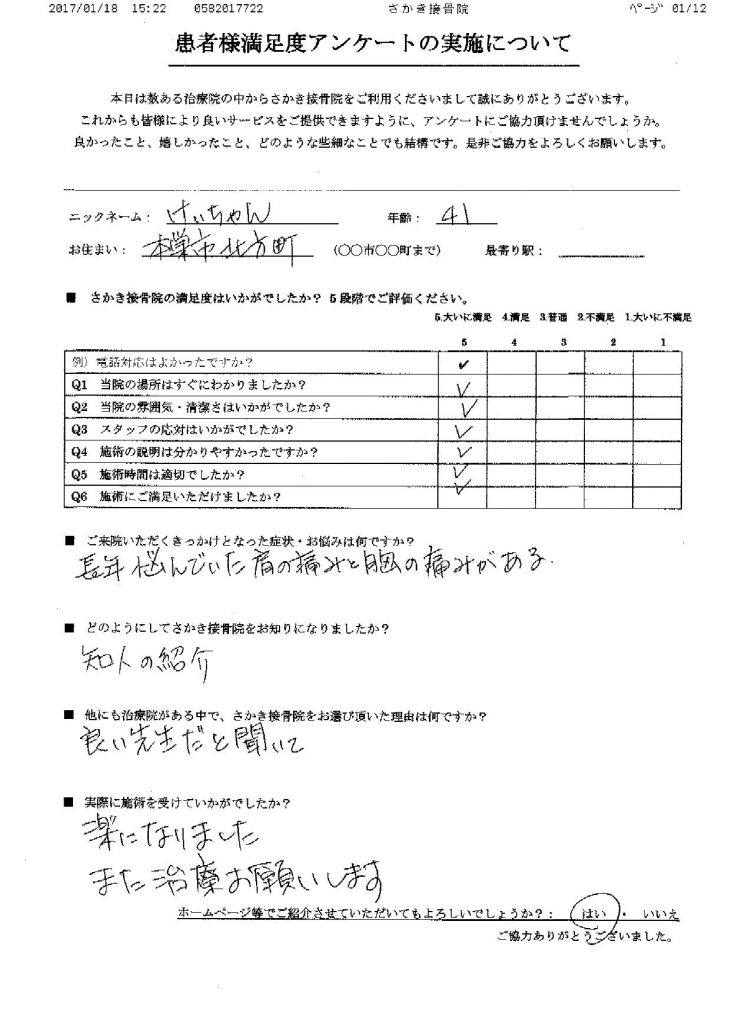 2017/01/18 15:22 0582017722 さかき接骨院 ページ 01/12
患者様満足度アンケートの実施について
本日は数ある治療院の中からさかき接骨院をご利用くださいまして誠にありがとうございます。
これからも皆様により良いサービスをご提供できますように、アンケートにご協力頂けませんでしょうか。
良かったこと、嬉しかったこと、どのような些細なことでも結構です。是非ご協力をよろしくお願いします。
ニックネーム： けいちゃん 年齢： 41
お住まい： 本巣市北方町 （〇〇市〇〇町まで） 最寄り駅：
■ さかき接骨院の満足度はいかがでしたか？ 5段階でご評価ください。
5.大いに満足 4.満足 3.普通 2.不満足 1.大いに不満足
5 4 3 2 1
例）電話対応はよかったですか？ ✓
Q1 当院の場所はすぐにわかりましたか？ ✓
Q2 当院の雰囲気・清潔さはいかがでしたか？ ✓
Q3 スタッフの応対はいかがでしたか？ ✓
Q4 施術の説明は分かりやすかったですか？ ✓
Q5 施術時間は適切でしたか？ ✓
Q6 施術にご満足いただけましたか？ ✓
■ ご来院いただくきっかけとなった症状・お悩みは何ですか？
長年悩んでいた肩の痛みと胸の痛みがある.
■ どのようにしてさかき接骨院をお知りになりましたか？
知人の紹介
■ 他にも治療院がある中で、さかき接骨院をお選び頂いた理由は何ですか？
良い先生だと聞いて
■ 実際に施術を受けていかがでしたか？
楽になりました
また治療お願いします
ホームページ等でご紹介させていただいてもよろしいでしょうか？： はい ・ いいえ
ご協力ありがとうございました。